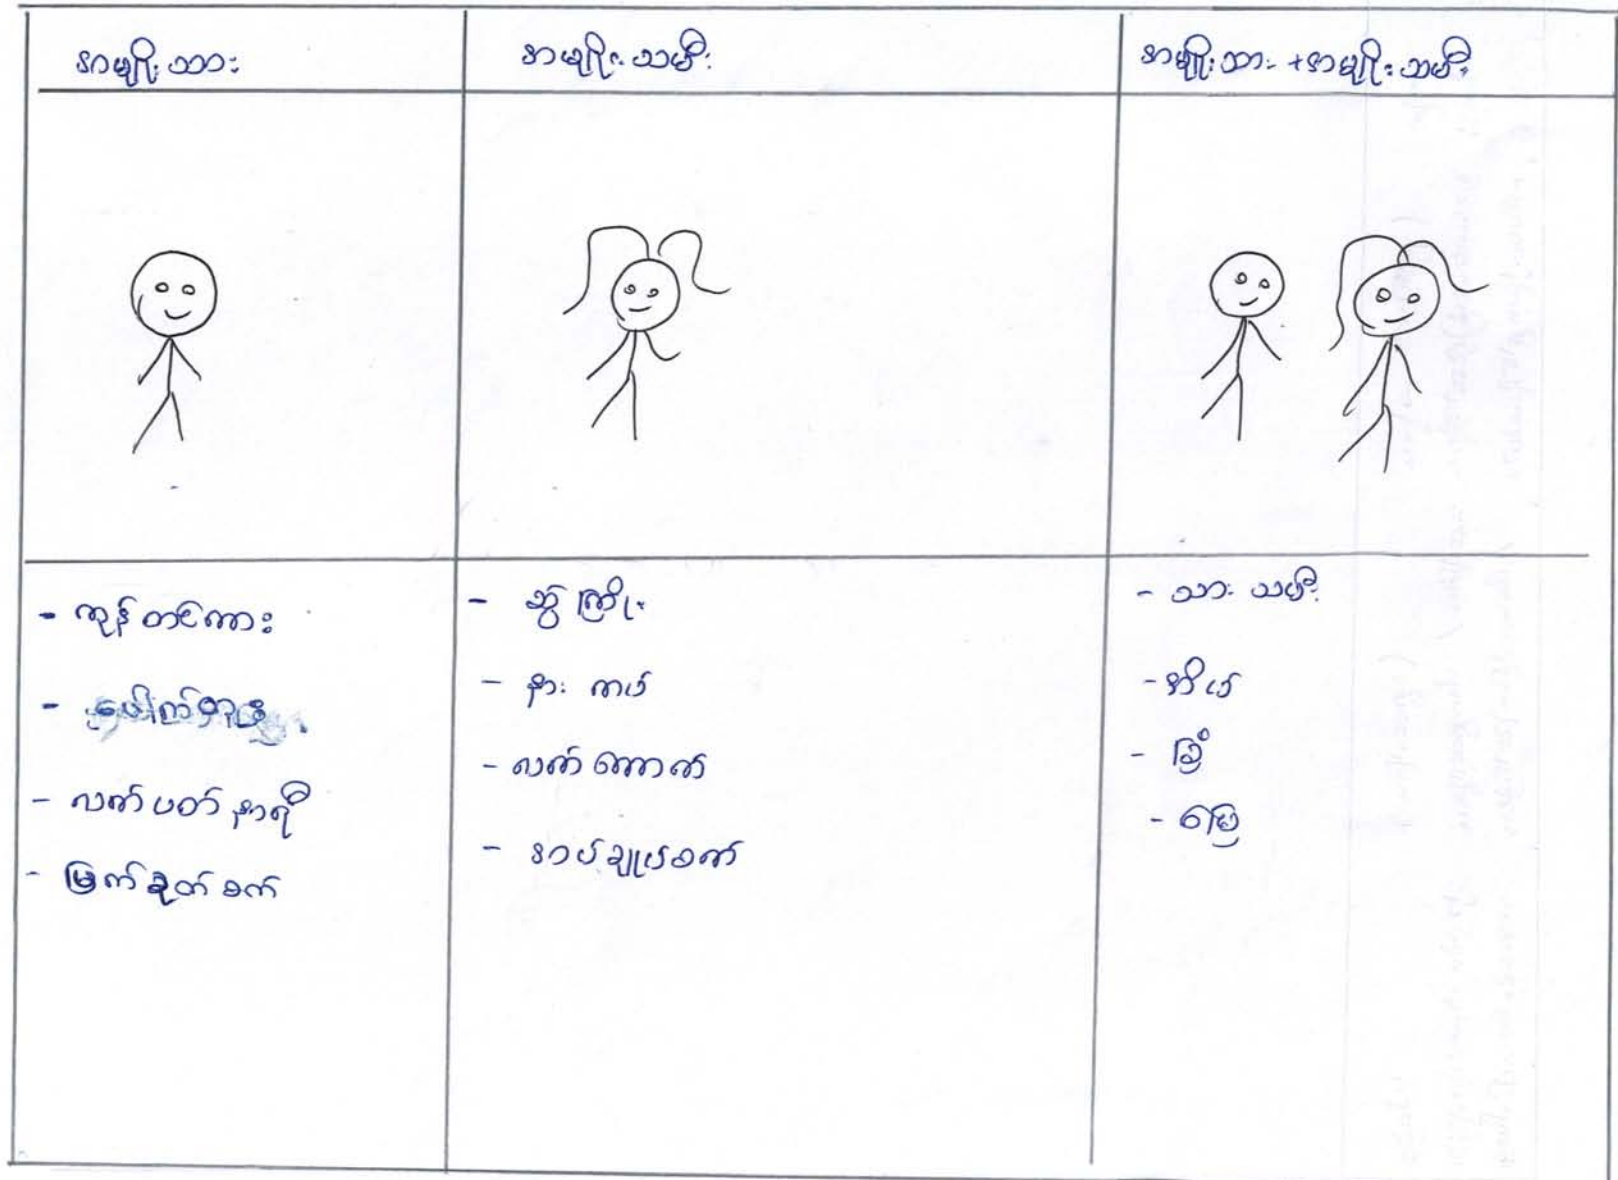 အမျိုးသား
အမျိုးသမီး
အမျိုးသား + အမျိုးသမီး
- ကုန်တင်ကား
- လက်ပတ်နာရီ
- မြက်ခုတ်စက်
- ဆွဲကြိုး
- နားကပ်
- လက်ကောက်
- အပ်ချုပ်စက်
- သား သမီး
- အိမ်
- ခြံ
- မြေ